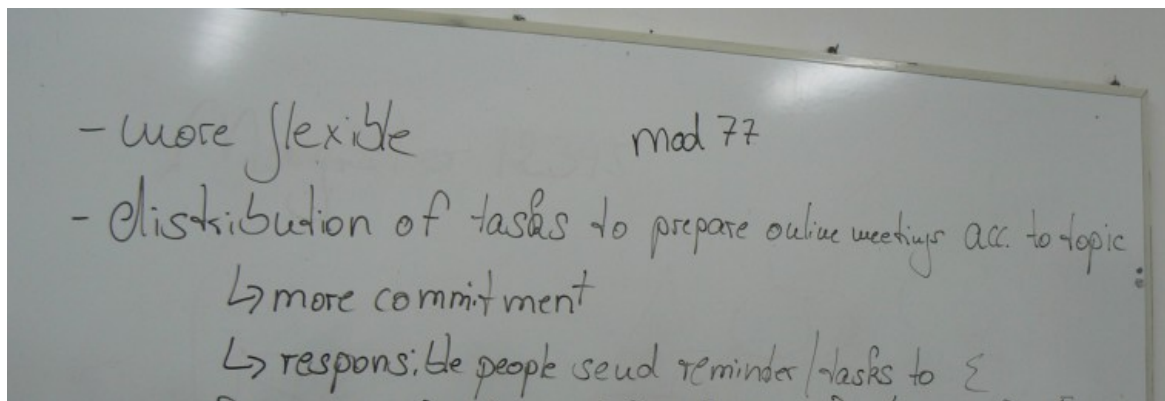 - more flexible mod 77
- distribution of tasks to prepare online meetings acc. to topic
↳ more commitment
↳ responsible people send reminder/tasks to Σ